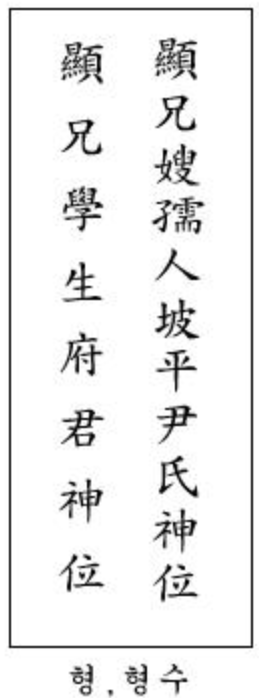 顯兄嫂孺人坡平尹氏神位
顯兄學生府君神位
형, 형수